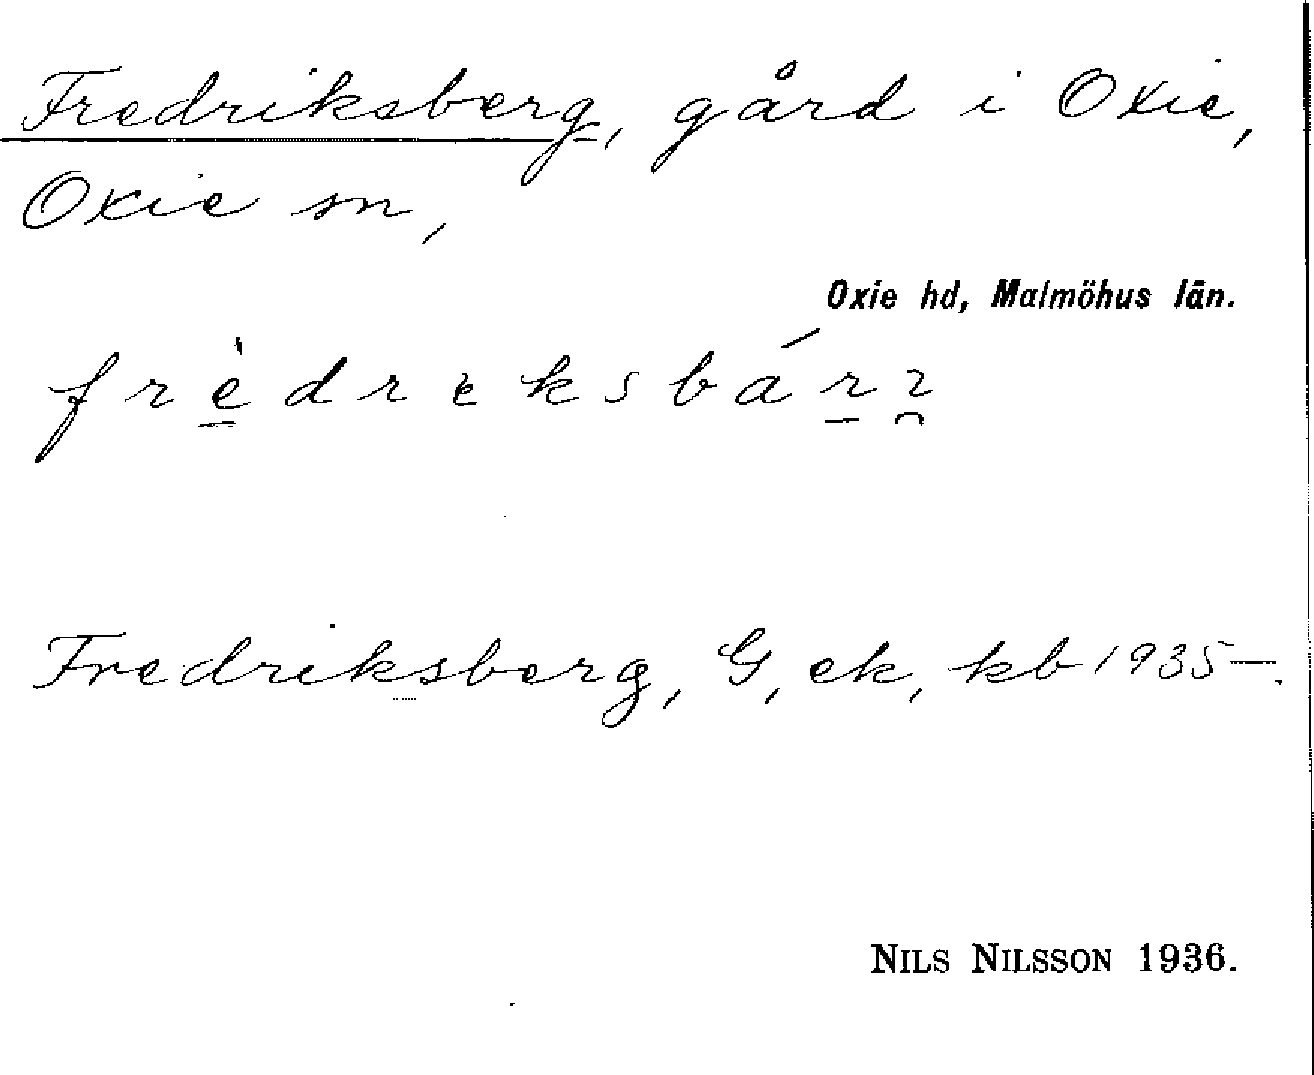 Fredriksberg, gård i Oxie,
Oxie sn,
Oxie hd, Malmöhus län.
Fredriksberg, G, ek, kb 1935—.
NILS NILSSON 1936.